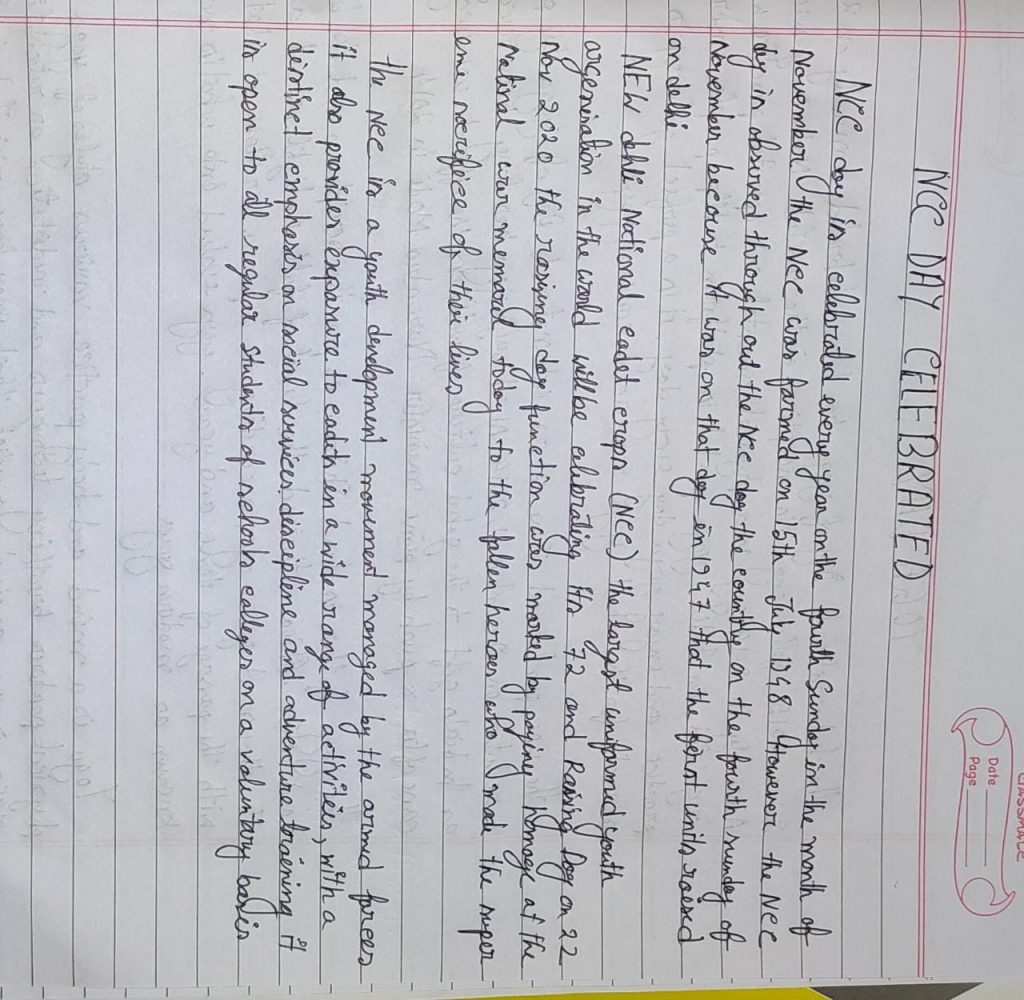 classmate
Date
Page
NCC DAY CELEBRATED
NCC day is celebrated every year on the fourth Sunday in the month of
November the NCC was farmed on 15th July 1948 However the NCC
day in obsrved through out the NCC day the country on the fourth sunday of
November because it was on that day in 1947 that the first units raised
on delhi
NEW dehli National cadet crops (NCC) the largest uniformed youth
orgenisation in the world will be celibrating its 72 and Raising Day on 22
Nov 2020 the raising day function was marked by paying homage at the
National war memoral today to the fallen heroes who made the super
eme sacrifice of their lives
the NCC is a youth development movement managed by the armed forces
it also provides exposure to cadets in a wide range of activities, with a
distinct emphasis on social services discipline and adventure training it
is open to all regular students of schools colleges on a valuntary basis